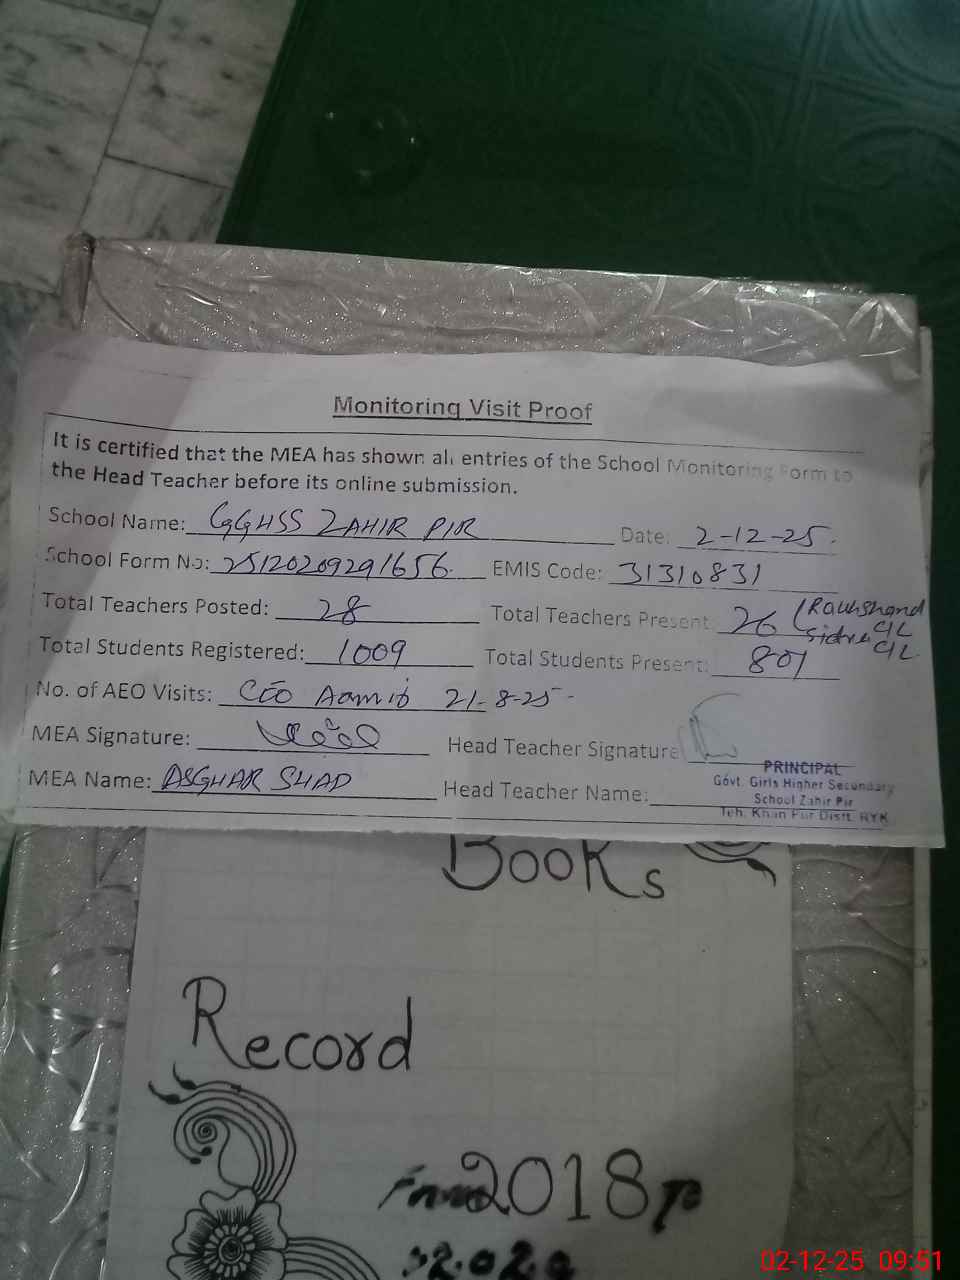 Monitoring Visit Proof
It is certified that the MEA has shown all entries of the School Monitoring Form to
the Head Teacher before its online submission.
School Name: GGHSS ZAHIR PIR Date: 2-12-25.
School Form No: 25120209291656. EMIS Code: 31310831
Total Teachers Posted: 28 Total Teachers Present: 26 (Raukshand C/L
Sidra C/L
Total Students Registered: 1009 Total Students Present: 801
No. of AEO Visits: CEO 21-8-25
MEA Signature: Head Teacher Signature
MEA Name: ASGHAR SHAD Head Teacher Name:
PRINCIPAL
Govt. Girls Higher Secondary
School Zahir Pir
Teh. Khan Pur Distt. RYK
Books
Record
From 2018 To
2020
02-12-25 09:51